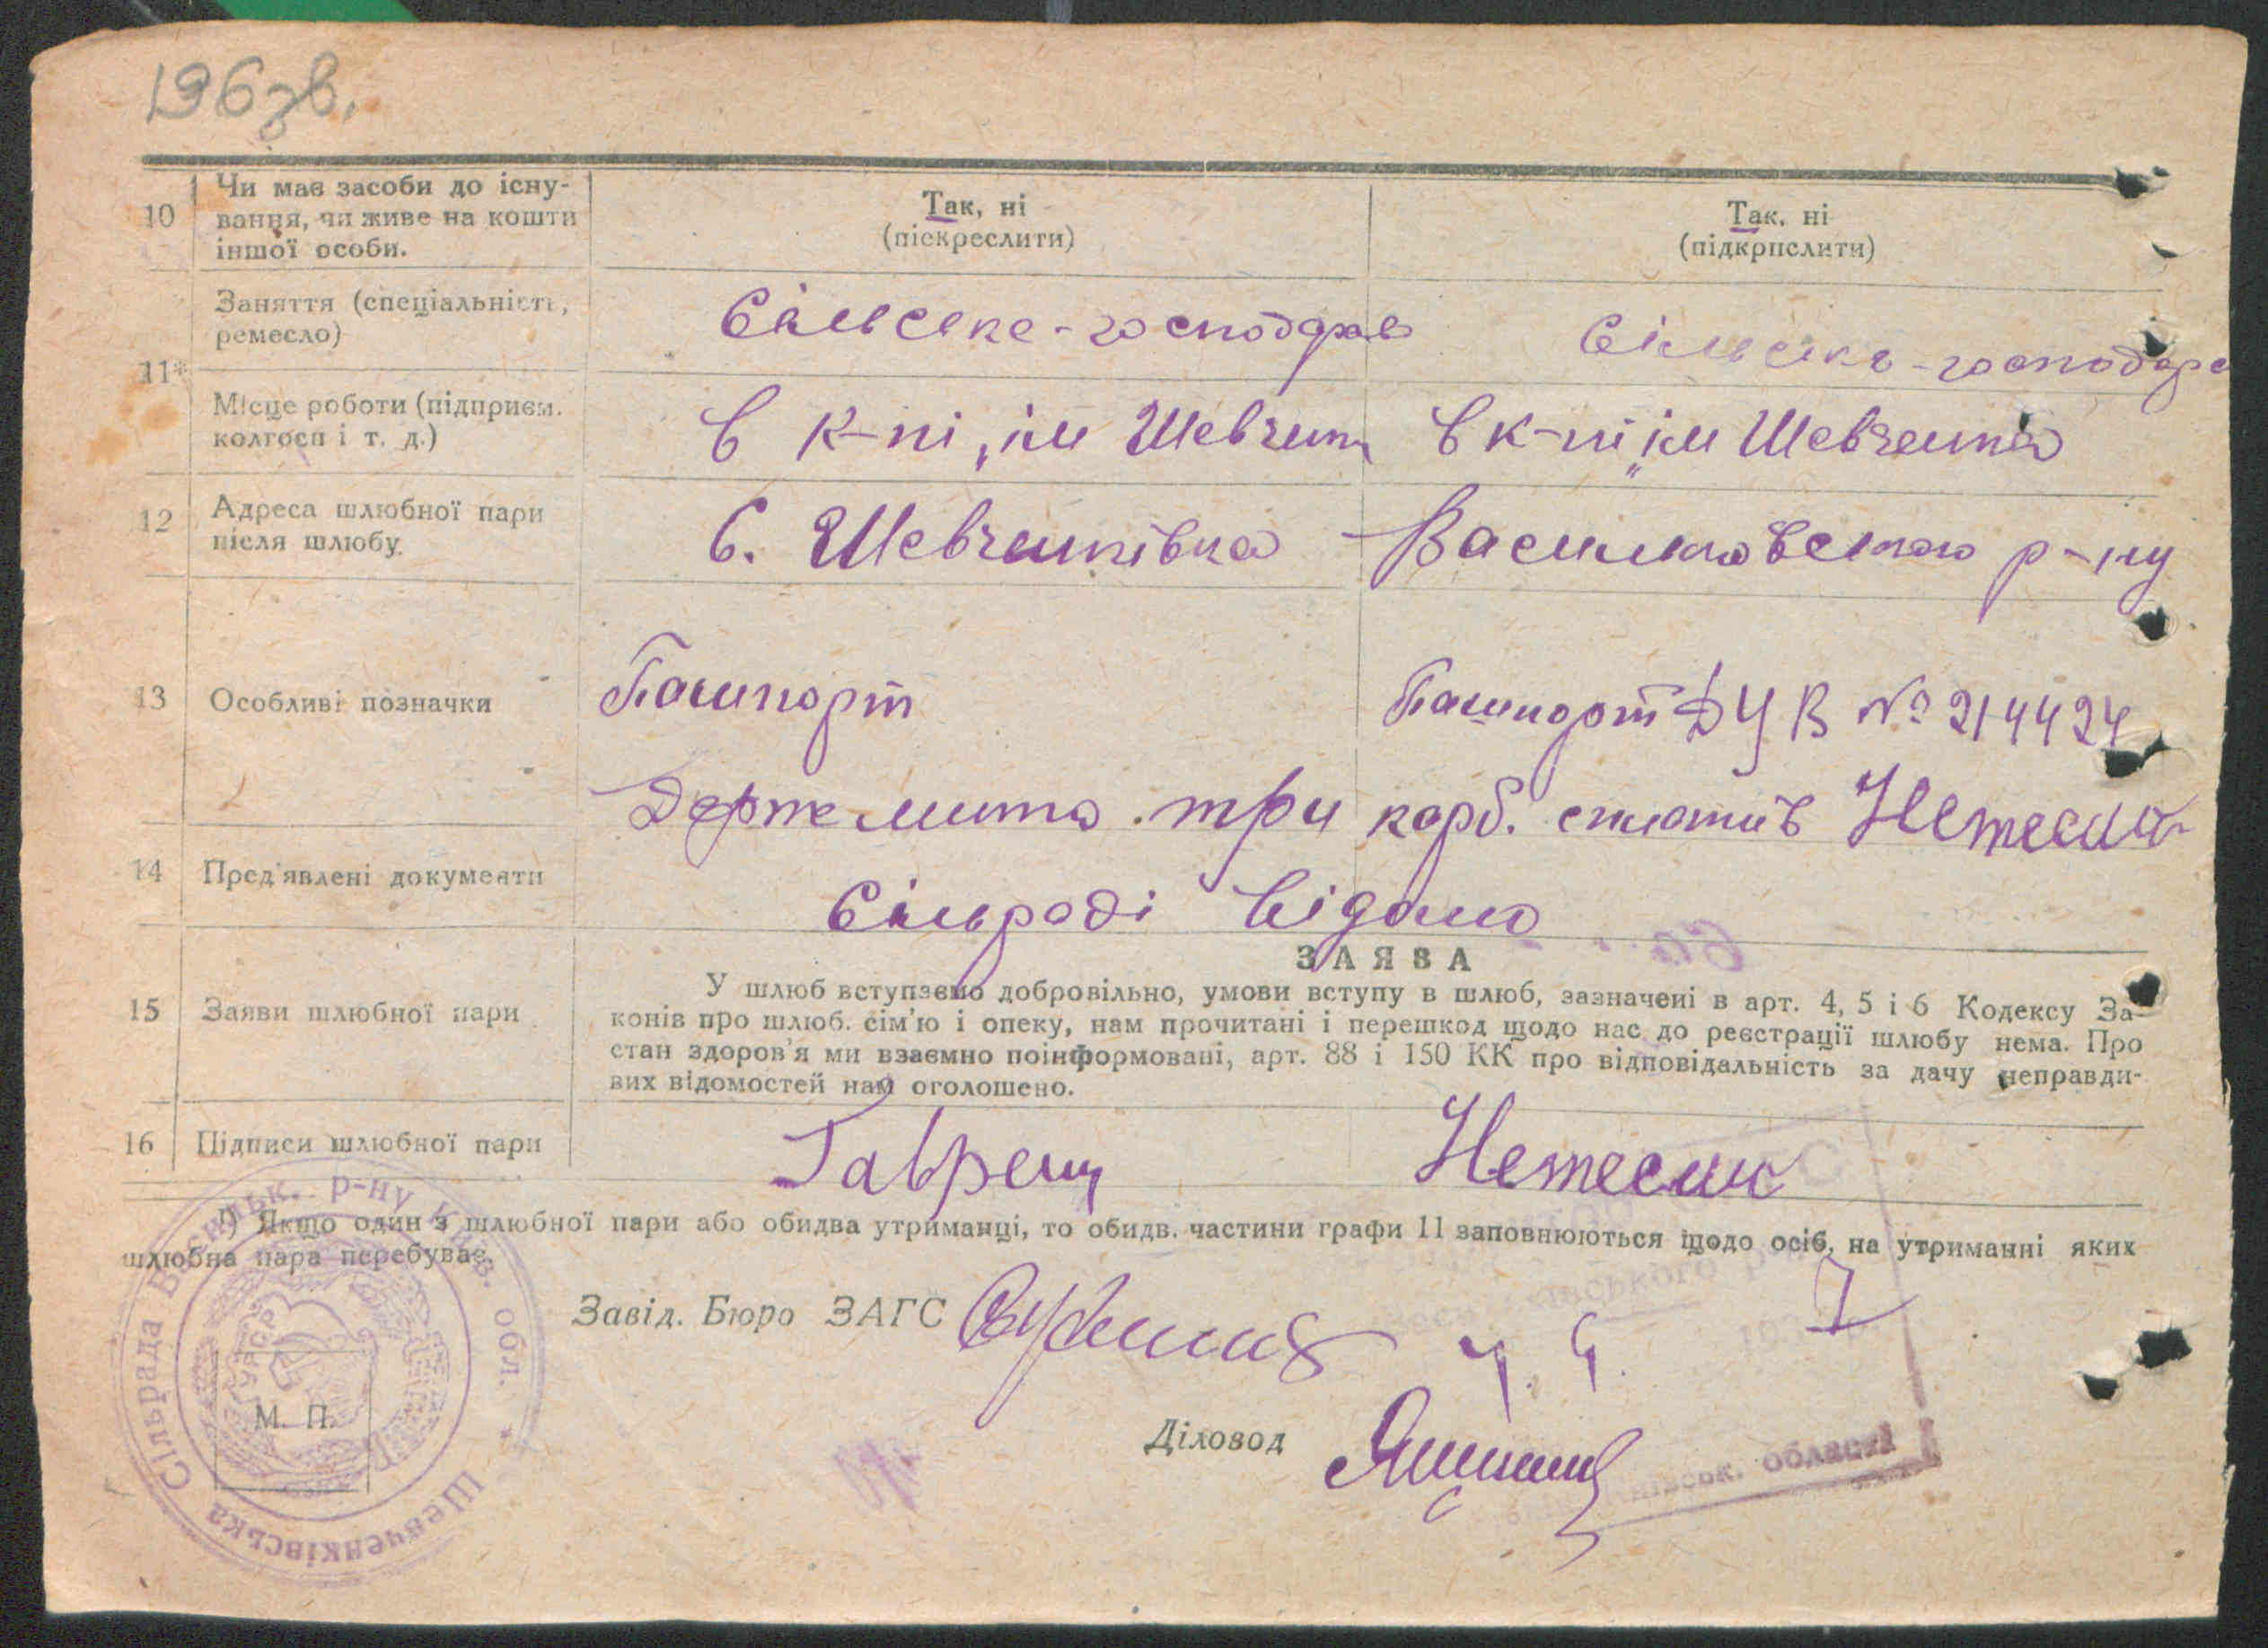 196 зв.
10 Чи має засоби до існу-
вання, чи живе на кошти
іншої особи.
Так, ні
(піекреслити)
Так, ні
(підкрпслити)
11*
Заняття (спеціальність,
ремесло)
Сільське-господарс
Сільське-господарс
Місце роботи (підприєм.
колгосп і т. д.)
в к-пі „ім Шевченк
в к-пі „ім Шевченка
12 Адреса шлюбної пари
після шлюбу.
С. Шевченківка Васильківського р-ну
13 Особливі позначки
Пашпорт
Пашпорт ДЦВ № 214424
Держ мита три карб. сплатив Нетесин
14 Пред'явлені документи
Сільраді відомо
15 Заяви шлюбної пари
ЗАЯВА
У шлюб вступаємо добровільно, умови вступу в шлюб, зазначені в арт. 4, 5 і 6 Кодексу За-
конів про шлюб. сім'ю і опеку, нам прочитані і перешкод щодо нас до реєстрації шлюбу нема. Про
стан здоров'я ми взаємно поінформовані, арт. 88 і 150 КК про відповідальність за дачу неправди-
вих відомостей нам оголошено.
16 Підписи шлюбної пари
Гаврещ
Нетесин
*) Якщо один з шлюбної пари або обидва утриманці, то обидв. частини графи 11 заповнюються щодо осіб, на утриманні яких
шлюбна пара перебуває.
Завід. Бюро ЗАГС
Діловод
М. П.
Шевченківська Сільрада Васильк. р-ну Київ. обл.
УРСР
області